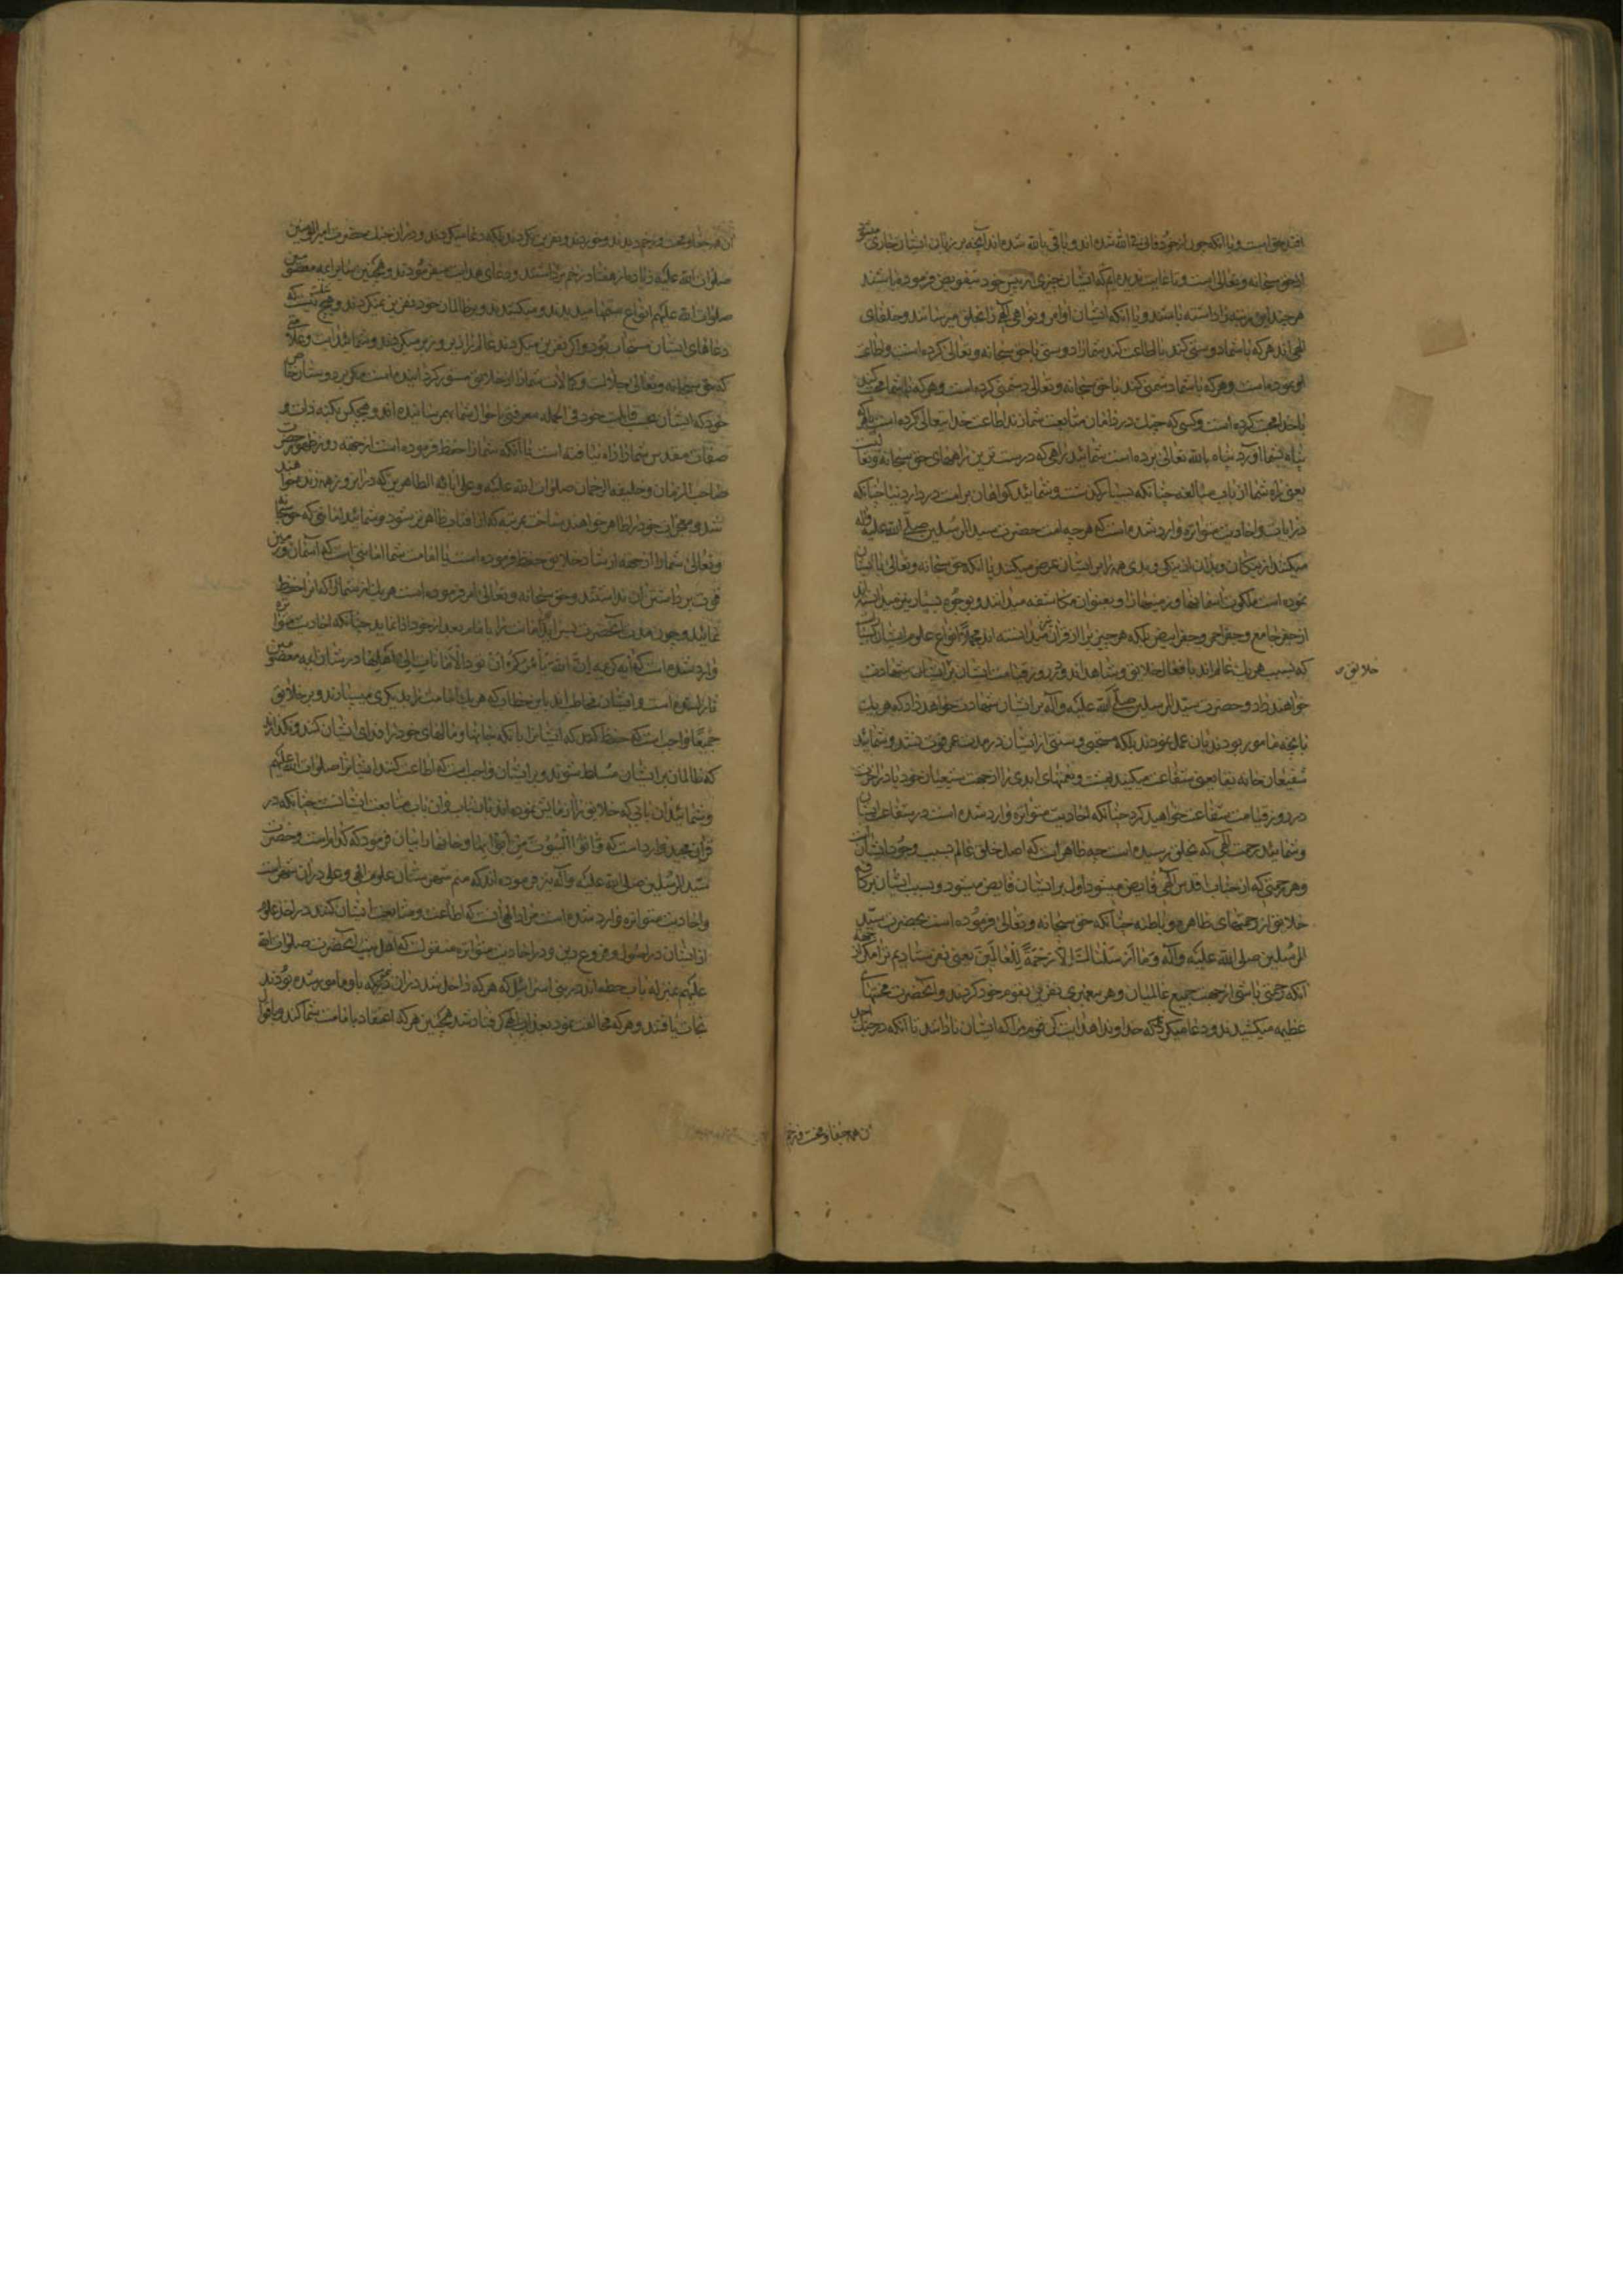 افتد حق است و یا آنکه چون از خود فانی فی الله شده اند و باقی بالله شده اند آنچه بر زبان ایشان جاری میشود
از حق سبحانه و تعالی است و تا غایت ندیده ایم که ایشان چیزی از پیش خود تفویض فرموده باشند
هر چند این مرتبه را داشته باشند و یا آنکه ایشان اوامر و نواهی الهی را بخلق میرسانند و خلفای
الهی اند هر که با شما دوستی کند یا اطاعت کند شما را دوستی با حق سبحانه و تعالی کرده است و اطاعت
او نموده است و هر که با شما دشمنی کند با حق سبحانه و تعالی دشمنی کرده است و هر که با شما محبت کند
با خدا محبت کرده است و کسی که چنک در دامان متابعت شما زند اطاعت خدا یتعالی کرده است بلکه هر که
پناه بشما آورد پناه بالله تعالی برده است شمائید راهی که درست ترین راههای حق سبحانه و تعالیست
یعنی راه شما از باب مبالغه چنانکه بسیار گذشت و شمائید گواهان بر امت در دار دنیا چنانکه
در آیات و احادیث متواتره وارد شده است که هر چه امت حضرت سید المرسلین صلی الله علیه و آله
میکنند از نیکان و بدان از نیکی و بدی همه را بر ایشان عرض میکنند یا آنکه حق سبحانه و تعالی با ایشان
نموده است ملکوت آسمانها و زمینها را و بعنوان مکاشفه میدانند و بوجوه بسیار نیز میدانسته اند
از جفر جامع و جفر احمر و جفر ابیض بلکه هر چیز را از قرآن نیز میدانسته اند مجملا انواع علوم ایشان راست
که بسبب هر یک عالم اند بافعال خلایق و شاهد اند و در روز قیامت ایشان بر ایشان شهادت
خلایق
خواهند داد و حضرت سید المرسلین صلی الله علیه و آله بر ایشان شهادت خواهد داد که هر یک
بآنچه مامور بودند بآن عمل نمودند بلکه مستحبی و سنتی از ایشان در مدت عمر فوت نشد و شمائید
شفیعان خانه بقا یعنی شفاعت میکنید بهشت و نعمتهای ابدی را از جهت شیعیان خود یا در آخرت
در روز قیامت شفاعت خواهید کرد چنانکه احادیث متواتره وارد شده است در شفاعت ایشان
و شمائید رحمت الهی که بخلق رسیده است چه ظاهر است که اصل خلق عالم بسبب وجود ایشان است
و هر رحمتی که از جناب اقدس الهی فایض میشود اول بر ایشان فایض میشود و بسبب ایشان بر کافه
خلایق از رحمتهای ظاهره و باطنه چنانکه حق سبحانه و تعالی فرموده است بحضرت سید
المرسلین صلی الله علیه و آله وَمَا اَرْسَلْنَاكَ اِلَّا رَحْمَةً لِلْعَالَمِینَ یعنی نفرستادیم ترا مگر از جهة
آنکه رحمتی باشی از جهت جمیع عالمیان و هر پیغمبری نفرین بقوم خود کردند و آنحضرت محنتهای
عظیمه میکشیدند و دعا میکردند که خداوندا هدایت کن قوم مرا که ایشان نادانند تا آنکه در جنک احد
آن همه جفا و محنت و زخم
آن همه جفا و محنت و زخم دیدند و خوردند و نفرین نکردند بلکه دعا میکردند و در آن جنک حضرت امیر المؤمنین
صلوات الله علیه زیاده از هفتاد زخم برداشتند و دعای هدایت میفرمودند و همچنین سایر ائمه معصومین
صلوات الله علیهم انواع ستمها میدیدند و میکشیدند و بر ظالمان خود نفرین نمیکردند و هیچ شک نیست که
دعاهای ایشان مستجاب بود و اگر نفرین میکردند عالم را زیر و زبر میکردند و شمائید آیت و علامتی
که حق سبحانه و تعالی جلالت و کمالات شما را از خلایق مستور گردانیده است مگر بر دوستان خاص
خود که ایشان بحسب قابلیت خود فی الجمله معرفتی باحوال شما بهم رسانیده اند و هیچکس بکنه ذات و
صفات مقدس شما راه نیافته است یا آنکه شما را حفظ فرموده است از جهة روز ظهور حضرت
صاحب الزمان و خلیفة الرحمان صلوات الله علیه و علی آبائه الطاهرین که در آن روز همه زنده خواهند
شد و معجزات خود را ظاهر خواهند ساخت بمرتبه که از آفتاب ظاهر تر شود و شمائید امانتی که حق سبحانه
و تعالی شما را از جهة ارشاد خلایق حفظ فرموده است یا امامت شما امانتی است که آسمان و زمین
قوت برداشتن آن نداشتند و حق سبحانه و تعالی امر فرموده است هر یک از شما را که آنرا حفظ
نمائید و چون مدت آنحضرت بسر آید امانت را بامام بعد از خود ادا نماید چنانکه احادیث متواتره
وارد شده است که آیه کریمه اِنَّ اللهَ یَأْمُرُکُمْ اَنْ تُؤَدُّوا الْاَمَانَاتِ اِلیٰ اَهْلِهَا در شان ائمه معصومین
نازل شده است و ایشان مخاطب اند باین خطاب که هر یک امامت را بدیگری میسپارند و بر خلایق
جمیعا واجب است که حفظ کنند که ایشانرا بآنکه جانها و مالهای خود را فدای ایشان کنند و نگذارند
که ظالمان بر ایشان مسلط شوند و بر ایشان واجب است که اطاعت کنند ایشانرا صلوات الله علیهم
و شمائید آن بابی که خلایق را آزمایش نموده اند بآن باب و آن باب متابعت ایشانست چنانکه در
قرآن مجید وارد است که وَأْتُوا الْبُیُوتَ مِنْ اَبْوَابِهَا و خانها را بیان فرمود که کدامست و حضرت
سید المرسلین صلی الله علیه و آله نیز فرموده اند که منم شهرستان علوم الهی و علی در آن شهرست
و احادیث متواتره وارد شده است مراد الهی آنست که اطاعت و متابعت ایشان کنند در اخذ علوم
از ایشان در اصول و فروع دین و در احادیث متواتره منقولست که اهل بیت آنحضرت صلوات الله
علیهم بمنزله باب حطه اند در بنی اسرائیل که هر که داخل شد در آن درگاه که باو مامور شده بودند
نجات یافتند و هر که مخالفت نمود بعذاب الهی گرفتار شد همچنین هر که اعتقاد بامامت شما کند و باقوال